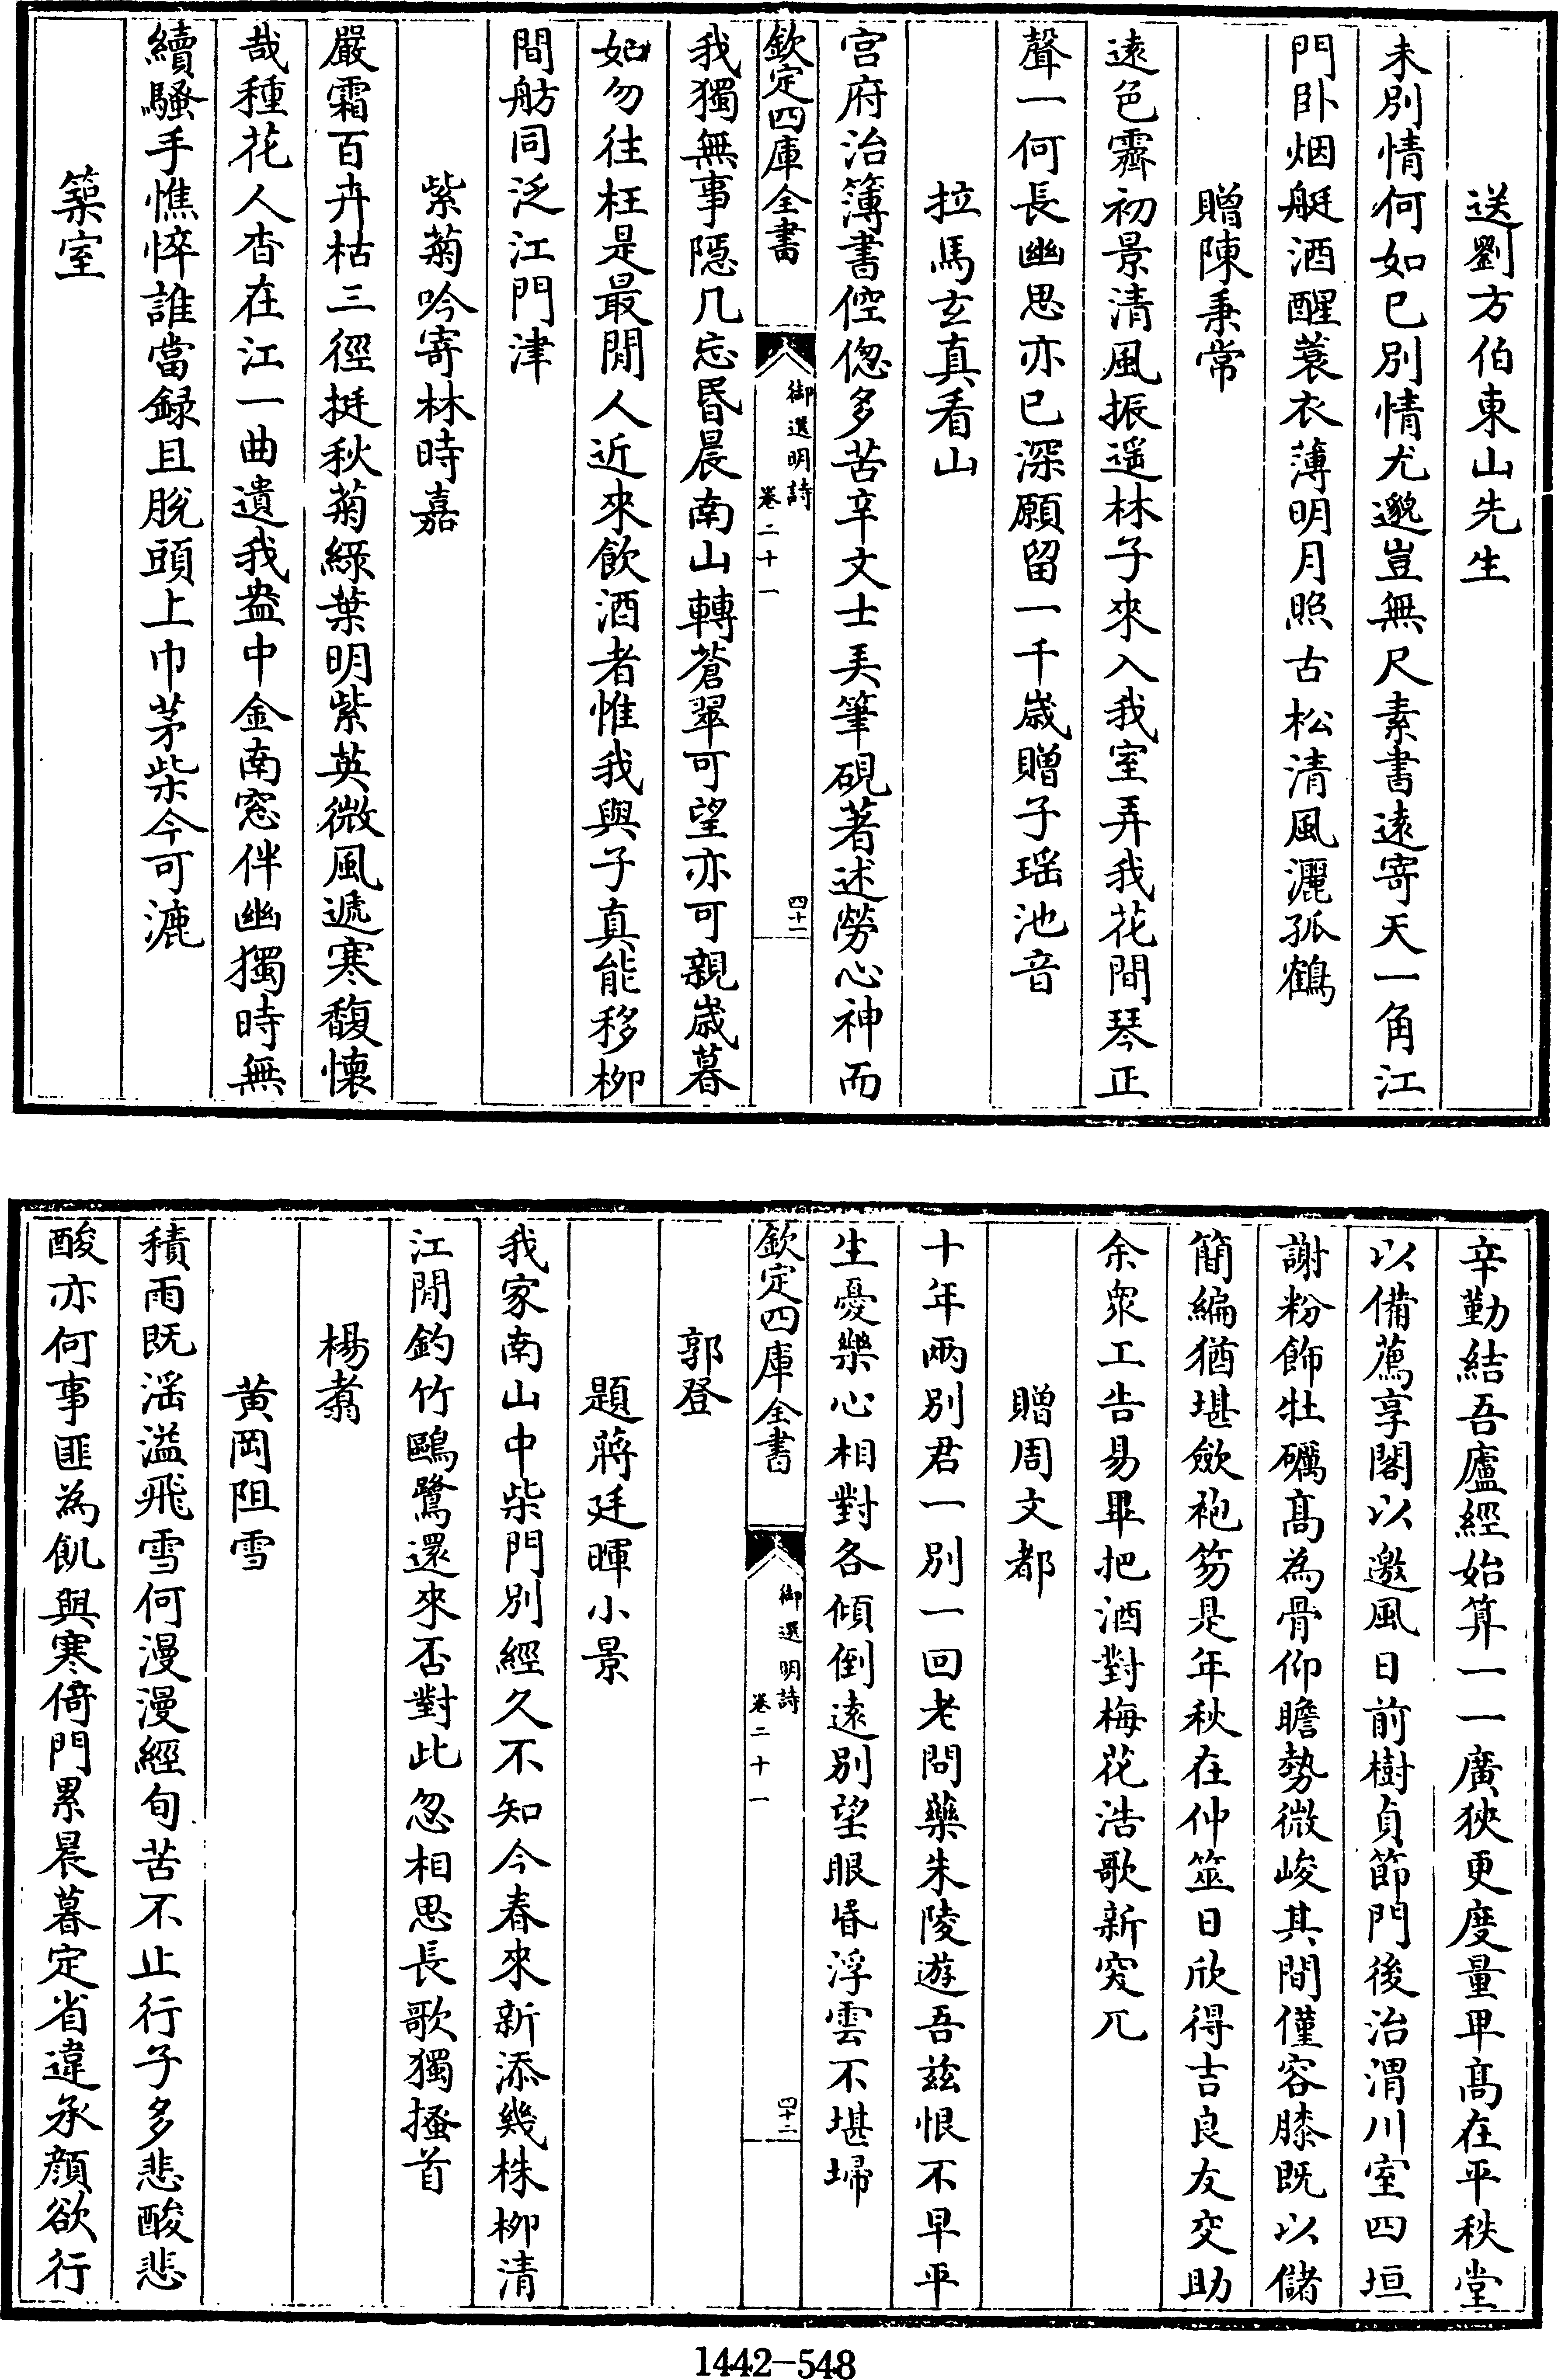 送劉方伯東山先生
未別情何如已別情尤邈豈無尺素書遠寄天一角江
門卧烟艇酒醒蓑衣薄明月照古松清風灑孤鶴
贈陳秉常
遠色霽初景清風振遥林子來入我室弄我花間琴正
聲一何長幽思亦已深願留一千歳贈子瑶池音
拉馬玄真看山
官府治簿書倥偬多苦辛文士弄筆硯著述勞心神而
欽定四庫全書
御選明詩
卷二十一
四十一
我獨無事隠几忘昏晨南山轉蒼翠可望亦可親歳暮
如勿往枉是最閒人近來飲酒者惟我與子真能移柳
間舫同泛江門津
紫菊吟寄林時嘉
嚴霜百卉枯三徑挺秋菊緑葉明紫英微風遞寒馥懐
哉種花人杳在江一曲遺我盎中金南窓伴幽獨時無
續騷手憔悴誰當録且脫頭上巾茅柴今可漉
築室
辛勤結吾廬經始筭一一廣狹更度量卑髙在平秩堂
以備薦享閣以邀風日前樹貞節門後治渭川室四垣
謝粉飾牡礪髙為骨仰瞻勢微峻其間僅容膝既以儲
簡編猶堪歛袍笏是年秋在仲筮日欣得吉良友交助
余衆工告易畢把酒對梅花浩歌新突兀
贈周文都
十年兩別君一別一回老問藥朱陵遊吾兹恨不早平
生憂樂心相對各傾倒遠別望眼昏浮雲不堪埽
欽定四庫全書
御選明詩
卷二十一
四十二
郭登
題蔣廷暉小景
我家南山中柴門別經久不知今春來新添幾株柳清
江閒釣竹鷗鷺還來否對此忽相思長歌獨搔首
楊翥
黄岡阻雪
積雨既滛溢飛雪何漫漫經旬苦不止行子多悲酸悲
酸亦何事匪為飢與寒倚門累晨暮定省違承顔欲行
1442-548